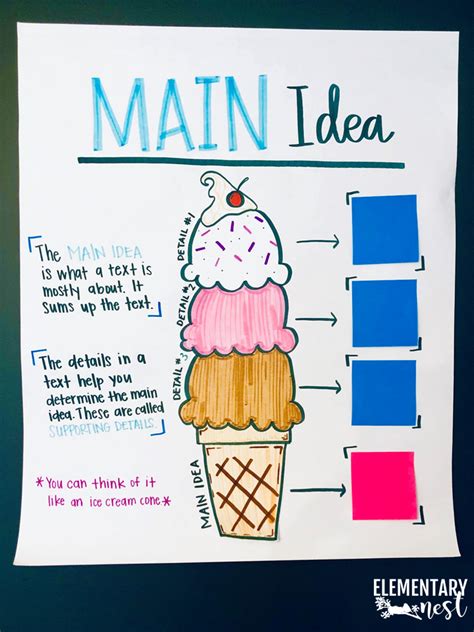 MAIN Idea
The MAIN IDEA
is what a text is
mostly about. It
sums up the text.
The details in a
text help you
determine the main
idea. These are called
SUPPORTING DETAILS.
*You can think of it
like an ice cream cone*
DETAIL #1
DETAIL #2
DETAIL #3
MAIN IDEA
ELEMENTARY
nest